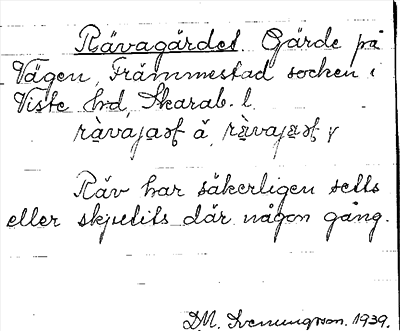 Rävagärdet. Gärde på
Vägen, Främmestad socken i
Viste hrd, Skarab. l.
Räv har säkerligen setts
eller skjutits där någon gång.
D. M. Svenungsson. 1939.